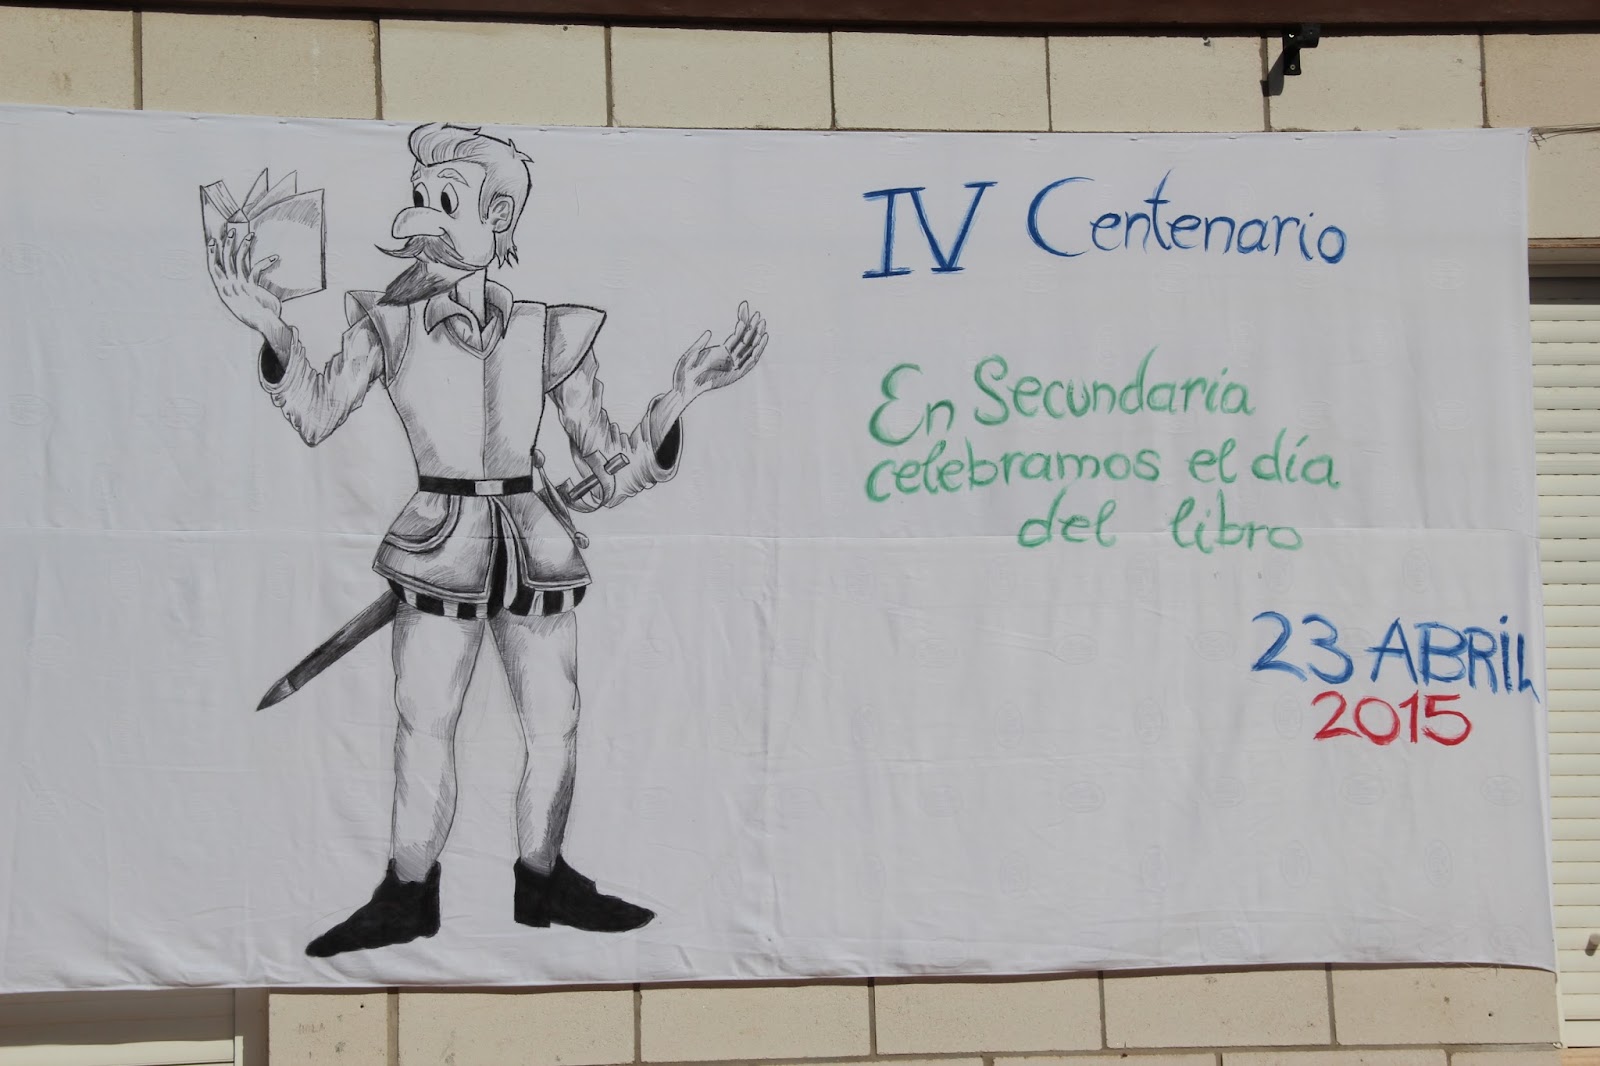 IV Centenario
En Secundaria
celebramos el día
del libro
23 ABRIL
2015